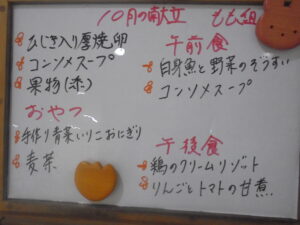 10月の献立 もも組
ひじき入り厚焼卵
コンソメスープ
果物(柿)
おやつ
手作り青菜いりこおにぎり
麦茶
午前食
白身魚と野菜のぞうすい
コンソメスープ
午後食
鶏のクリームリゾット
りんごとトマトの甘煮